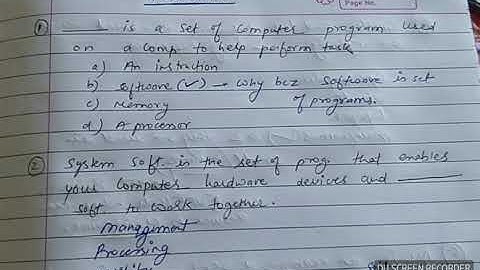 Page No.
① ______ is a set of computer program used
on a comp. to help perform task
a) An instraction
b) software (✓) → Why bcz software is set
of programs.
c) Memory
d) A processor
② System soft. is the set of prog. that enables
your computers hardware devices and ______
soft. to work together.
Management
Processing
DU SCREEN RECORDER